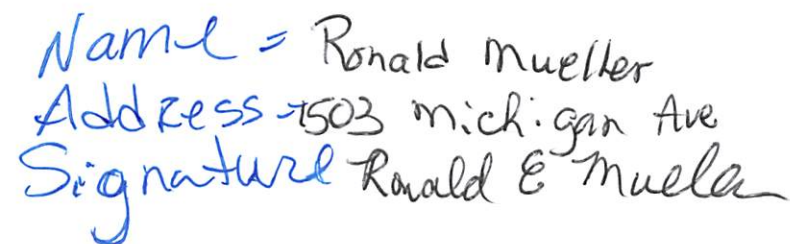 Name = Ronald Mueller
Address - 1503 Michigan Ave
Signature Ronald E Mueller